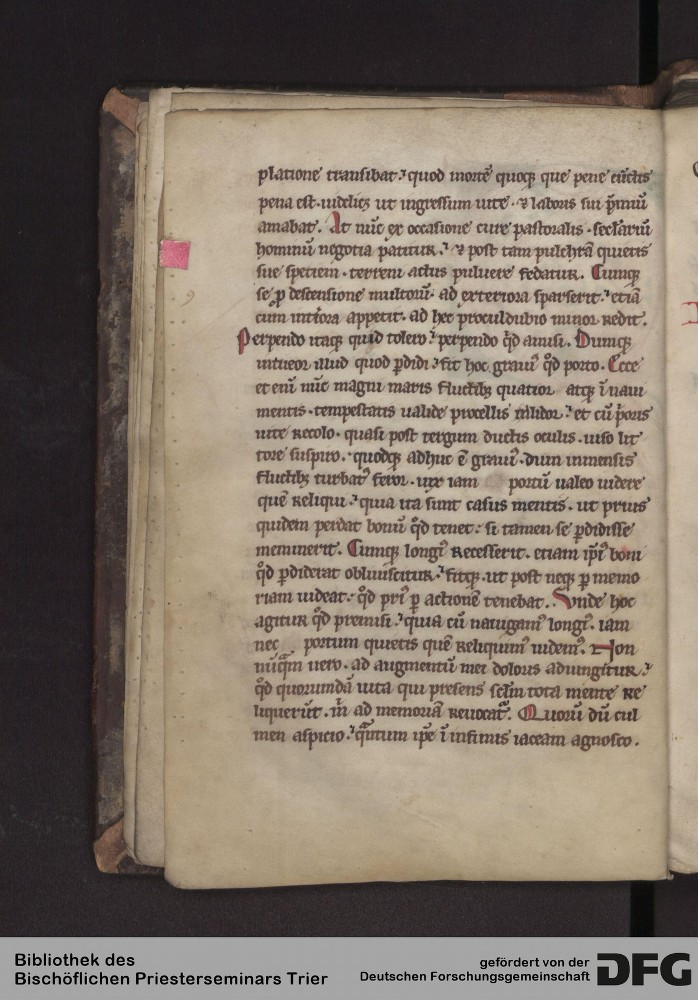 platione transibat. quod mortē quoq; que pene cūctis
pena est. uidelicꝫ ut ingressum uite. ⁊ laboris sui p̄miū
amabat. At nūc ex occasione cure pastoralis. seclariū
hominū negotia patitur. ⁊ post tam pulchrā quietis
sue speciem. terreni actus puluere fedatur. Cumq;
se ꝓ descensione multorū. ad exteriora sparserit. etiā
cum int̄iora appetit. ad hec proculdubio minor redit.
Perpendo itaq; quid tolero. perpendo qd̄ amisi. Dumq;
intueor illud quod ꝑdidi. fit hoc grauiꝰ qd̄ porto. Ecce
et enī nūc magni maris fluctibꝫ quatior atq; ī naui
mentis. tempestatis ualide procellis illidor. et cū p̄oris
uite recolo. quasi post tergum ductis oculis. uiso lit
tore suspiro. quodq; adhuc ē grauiꝰ. dum inmensis
fluctibꝫ turbatꝰ feror. uix iam portū ualeo uidere
quē reliqui. quia ita sunt casus mentis. ut prius
quidem perdat bonū qd̄ tenet. si tamen se ꝑdidisse
meminerit. Cumq; longiꝰ recesserit. etiam ip̄iꝰ boni
qd̄ ꝑdiderat obliuiscitur. fitq; ut post neq; ꝑ memo
riam uideat. qd̄ priꝰ ꝑ actionē tenebat. Vnde hoc
agitur qd̄ premisi. quia cū nauigamꝰ longiꝰ. iam
nec portum quietis quē reliquimꝰ uidemꝰ. Non
nūqm̄ uero. ad augmentū mei doloris adiungitur.
qd̄ quorundā uita qui presens sc̄lm tota mente re
liquerūt. m̄ ad memoriā reuocatᷣ. Quorū dū cul
men aspicio. qͣntum ip̄e ī infimis iaceam agnosco.
Bibliothek des
Bischöflichen Priesterseminars Trier
gefördert von der
Deutschen Forschungsgemeinschaft
DFG